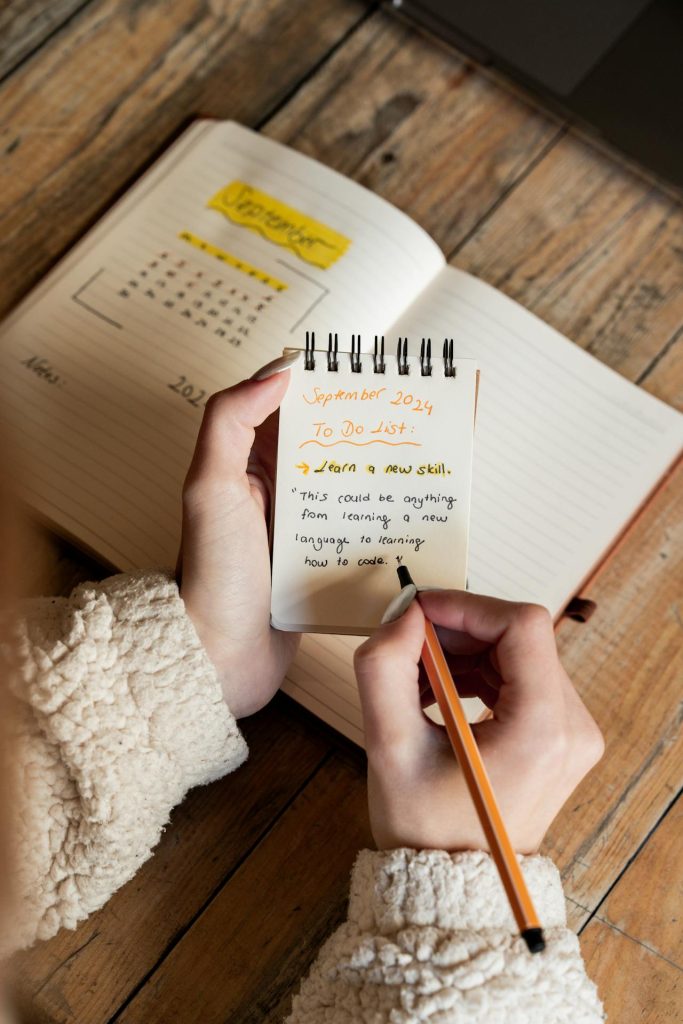 September
Notes:
September 2024
To Do List:
→ Learn a new skill.
"This could be anything
from learning a new
language to learning
how to code."